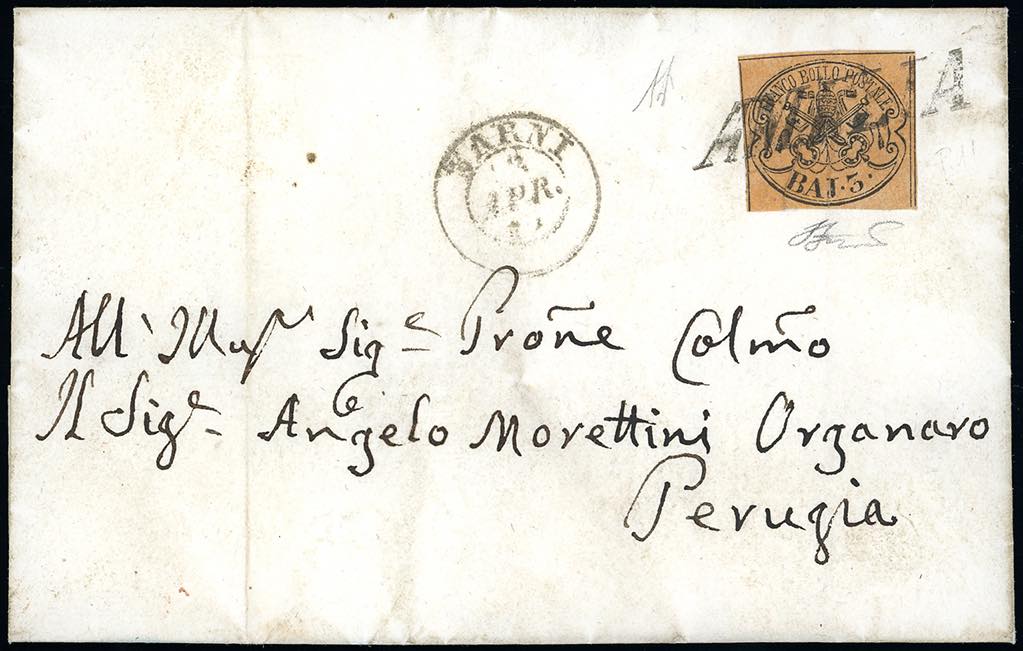 FRANCO BOLLO POSTALE
AMELIA
BAJ·3·
NARNI
APR.
All' Sig.e Prõne Colmõ
Il Sig.e Angelo Morettini Organaro
Perugia